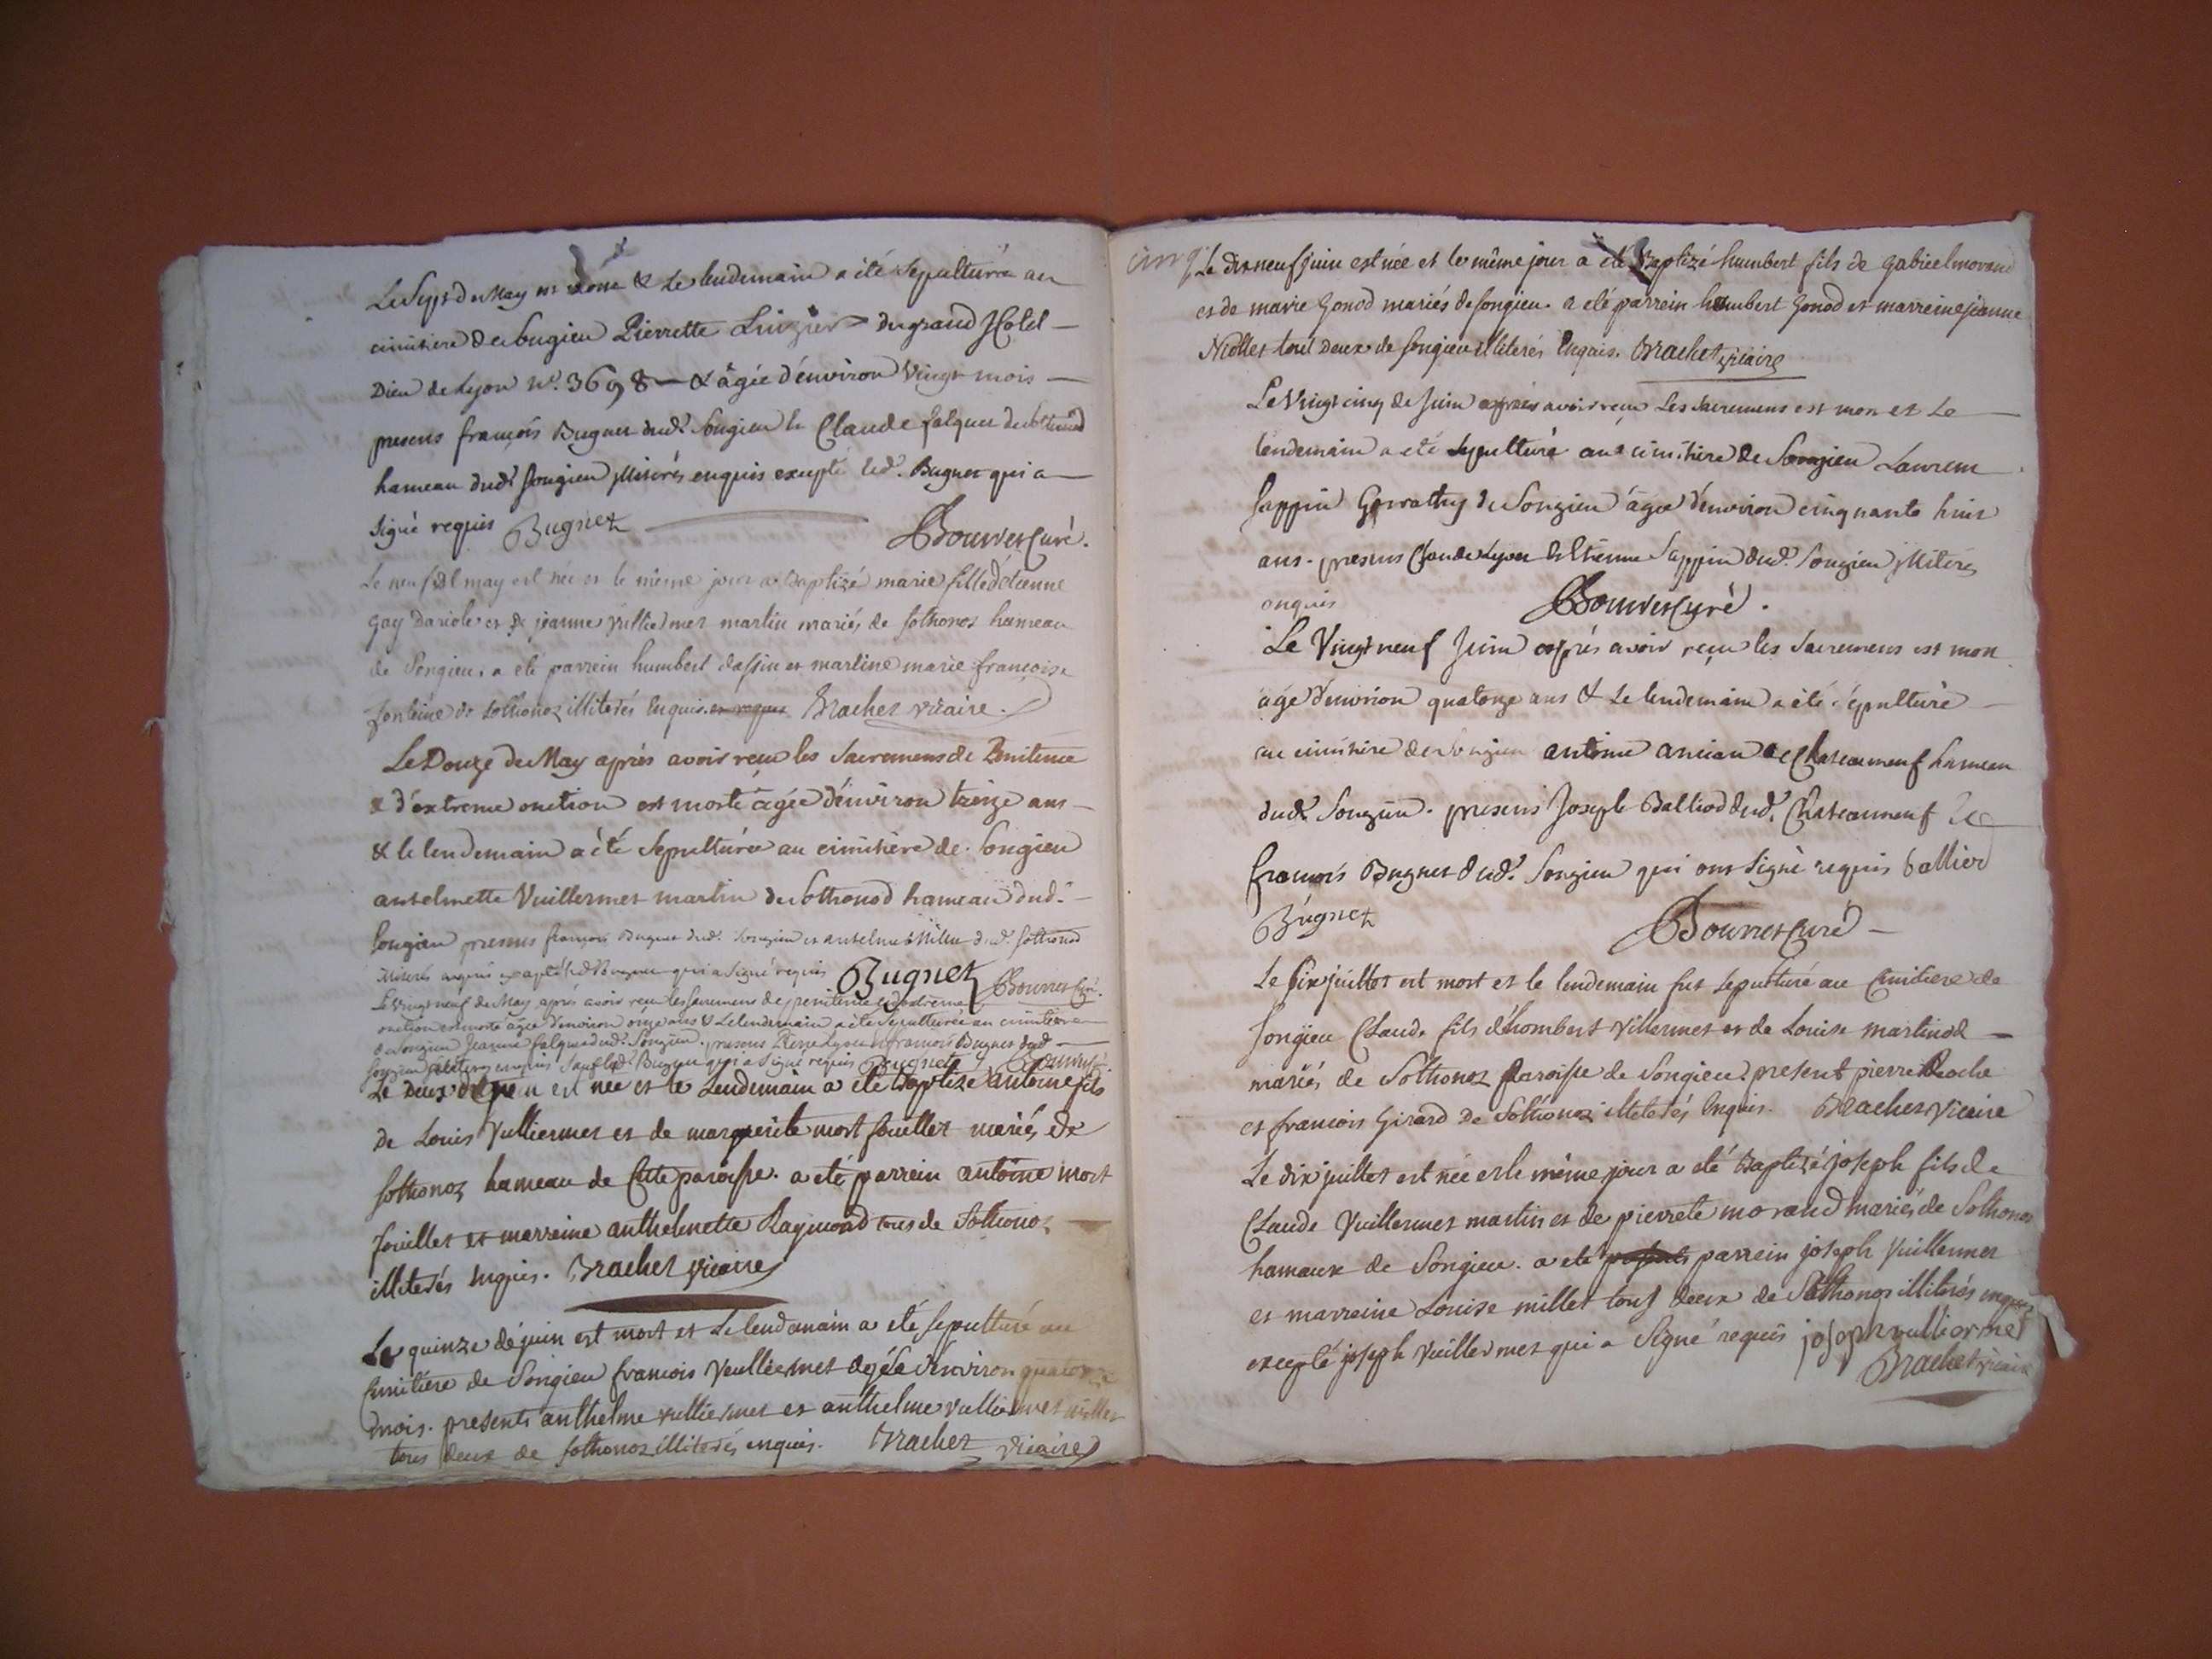 Le Sept de May est morte & Le lendemain a été Sepulturée au
cimitiere de Songieu Pierrette du grand Hotel
Dieu de Lyon n°. 3698 & âgée d'environ Vingt mois
presens françois Bugnet dud. Songieu & Claude falquet de Sothonod
hameau dud. Songieu illiterés enquis excepté led. Bugnet qui a
Signé requis Bugnet Bouvet Curé.
Le neuf de may est née et le même jour a Baptizé marie fille d'etienne
gay Dariole et de jeanne vuilliermet martin mariés de sothonos hameau
de Songieu. a eté parrein humbert dassin et marine marie françoise
fonteine de sothonoz illiterés Enquis. et requis Brachet vicaire.
Le Douze de May après avoir reçu les Sacremens de Penitence
& d'extreme onction est morte âgée d'environ treize ans
& le lendemain a été Sepulturée au cimitière de Songieu
antelmette Vuillermet martin de Sothonod hameau dud.
Songieu presens françois Bugnet dud. Songieu et antelme Millet dud. Sothonod
illiterés enquis excepté led. Bugnet qui a Signé requis Bugnet Bouvet Curé.
Le Vingt neuf de May après avoir reçu les Sacremens de penitence & d'extreme
onction est morte âgée d'environ onze ans & Le lendemain a été Sepulturée au cimitiere
de Songieu Jeanne falquet dud. Songieu. presens Pierre Lyvet et francois Bugnet dud.
Songieu illiterés enquis Sauf led. Bugnet qui a Signé requis Bugnet Bouvet Curé
Le Deux de juin est née et le Lendemain a eté Baptizé antoine fils
De Louis Vulliermet et de marguerite mort fouillet mariés de
sothonoz hameau de Cette paroisse. a eté parrein antoine mort
fouillet et marreine anthelmette Raymond tous de Sothonoz
illiterés enquis. Brachet vicaire
Le quinze de juin est mort et Le lendemain a eté sepulturé au
Cimitiere de Songieu francois Veulliermet agée d'environ quatorze
mois. presents anthelme vulliermet et anthelme vulliermet millet
tous deux de sothonoz illiterés enquis. Brachet vicaire
cinq
Le dix neuf juin est née et le même jour a eté Baptizé humbert fils de gabriel morand
et de marie gonod mariés de songieu. a eté parrein humbert gonod et marreine jeanne
Niollet tout Deux de songieu illiterés Enquis. Brachet vicaire
Le Vingt cinq de Juin après avoir reçu Les Sacremens est mort et Le
lendemain a été sepulturé au cimitière de Songieu Laurent
Sappin de Songieu âgé d'environ cinquante huit
ans. presens Claude Lyvet & Etienne Sappin dud. Songieu illiterés
enquis Bouvet Curé.
Le Vingt neuf Juin après avoir reçu les Sacremens est mort
agé d'environ quatorze ans & Le lendemain a été sépulturé
au cimitiere de Songieu antoine ancian de Chateauneuf hameau
dud. Songieu. presens Joseph Balliod dud. Chateauneuf &
francois Bugnet dud. Songieu qui ont Signé requis balliod
Bugnet Bouvet Curé
Le six juillet est mort et le lendemain fut sepulturé au Cimitiere de
Songieu Claude fils d'hombert villermet et de Louise martinod
mariés de Sothonoz paroisse de Songieu. present pierre Roche
et francois Girard de Sothonoz illiterés Enquis. Brachet vicaire
Le dix juillet est née et le même jour a eté Baptizé joseph fils de
Claude Vuillermet martin et de pierrete morand mariés de Sothonos
hameaux de Songieu. a eté parrein joseph vuillermet
et marreine Louise millet tout deux de Sothonos illiterés enquis
excepté joseph vuillermet qui a Signé requis joseph vulliermet
Brachet vicaire